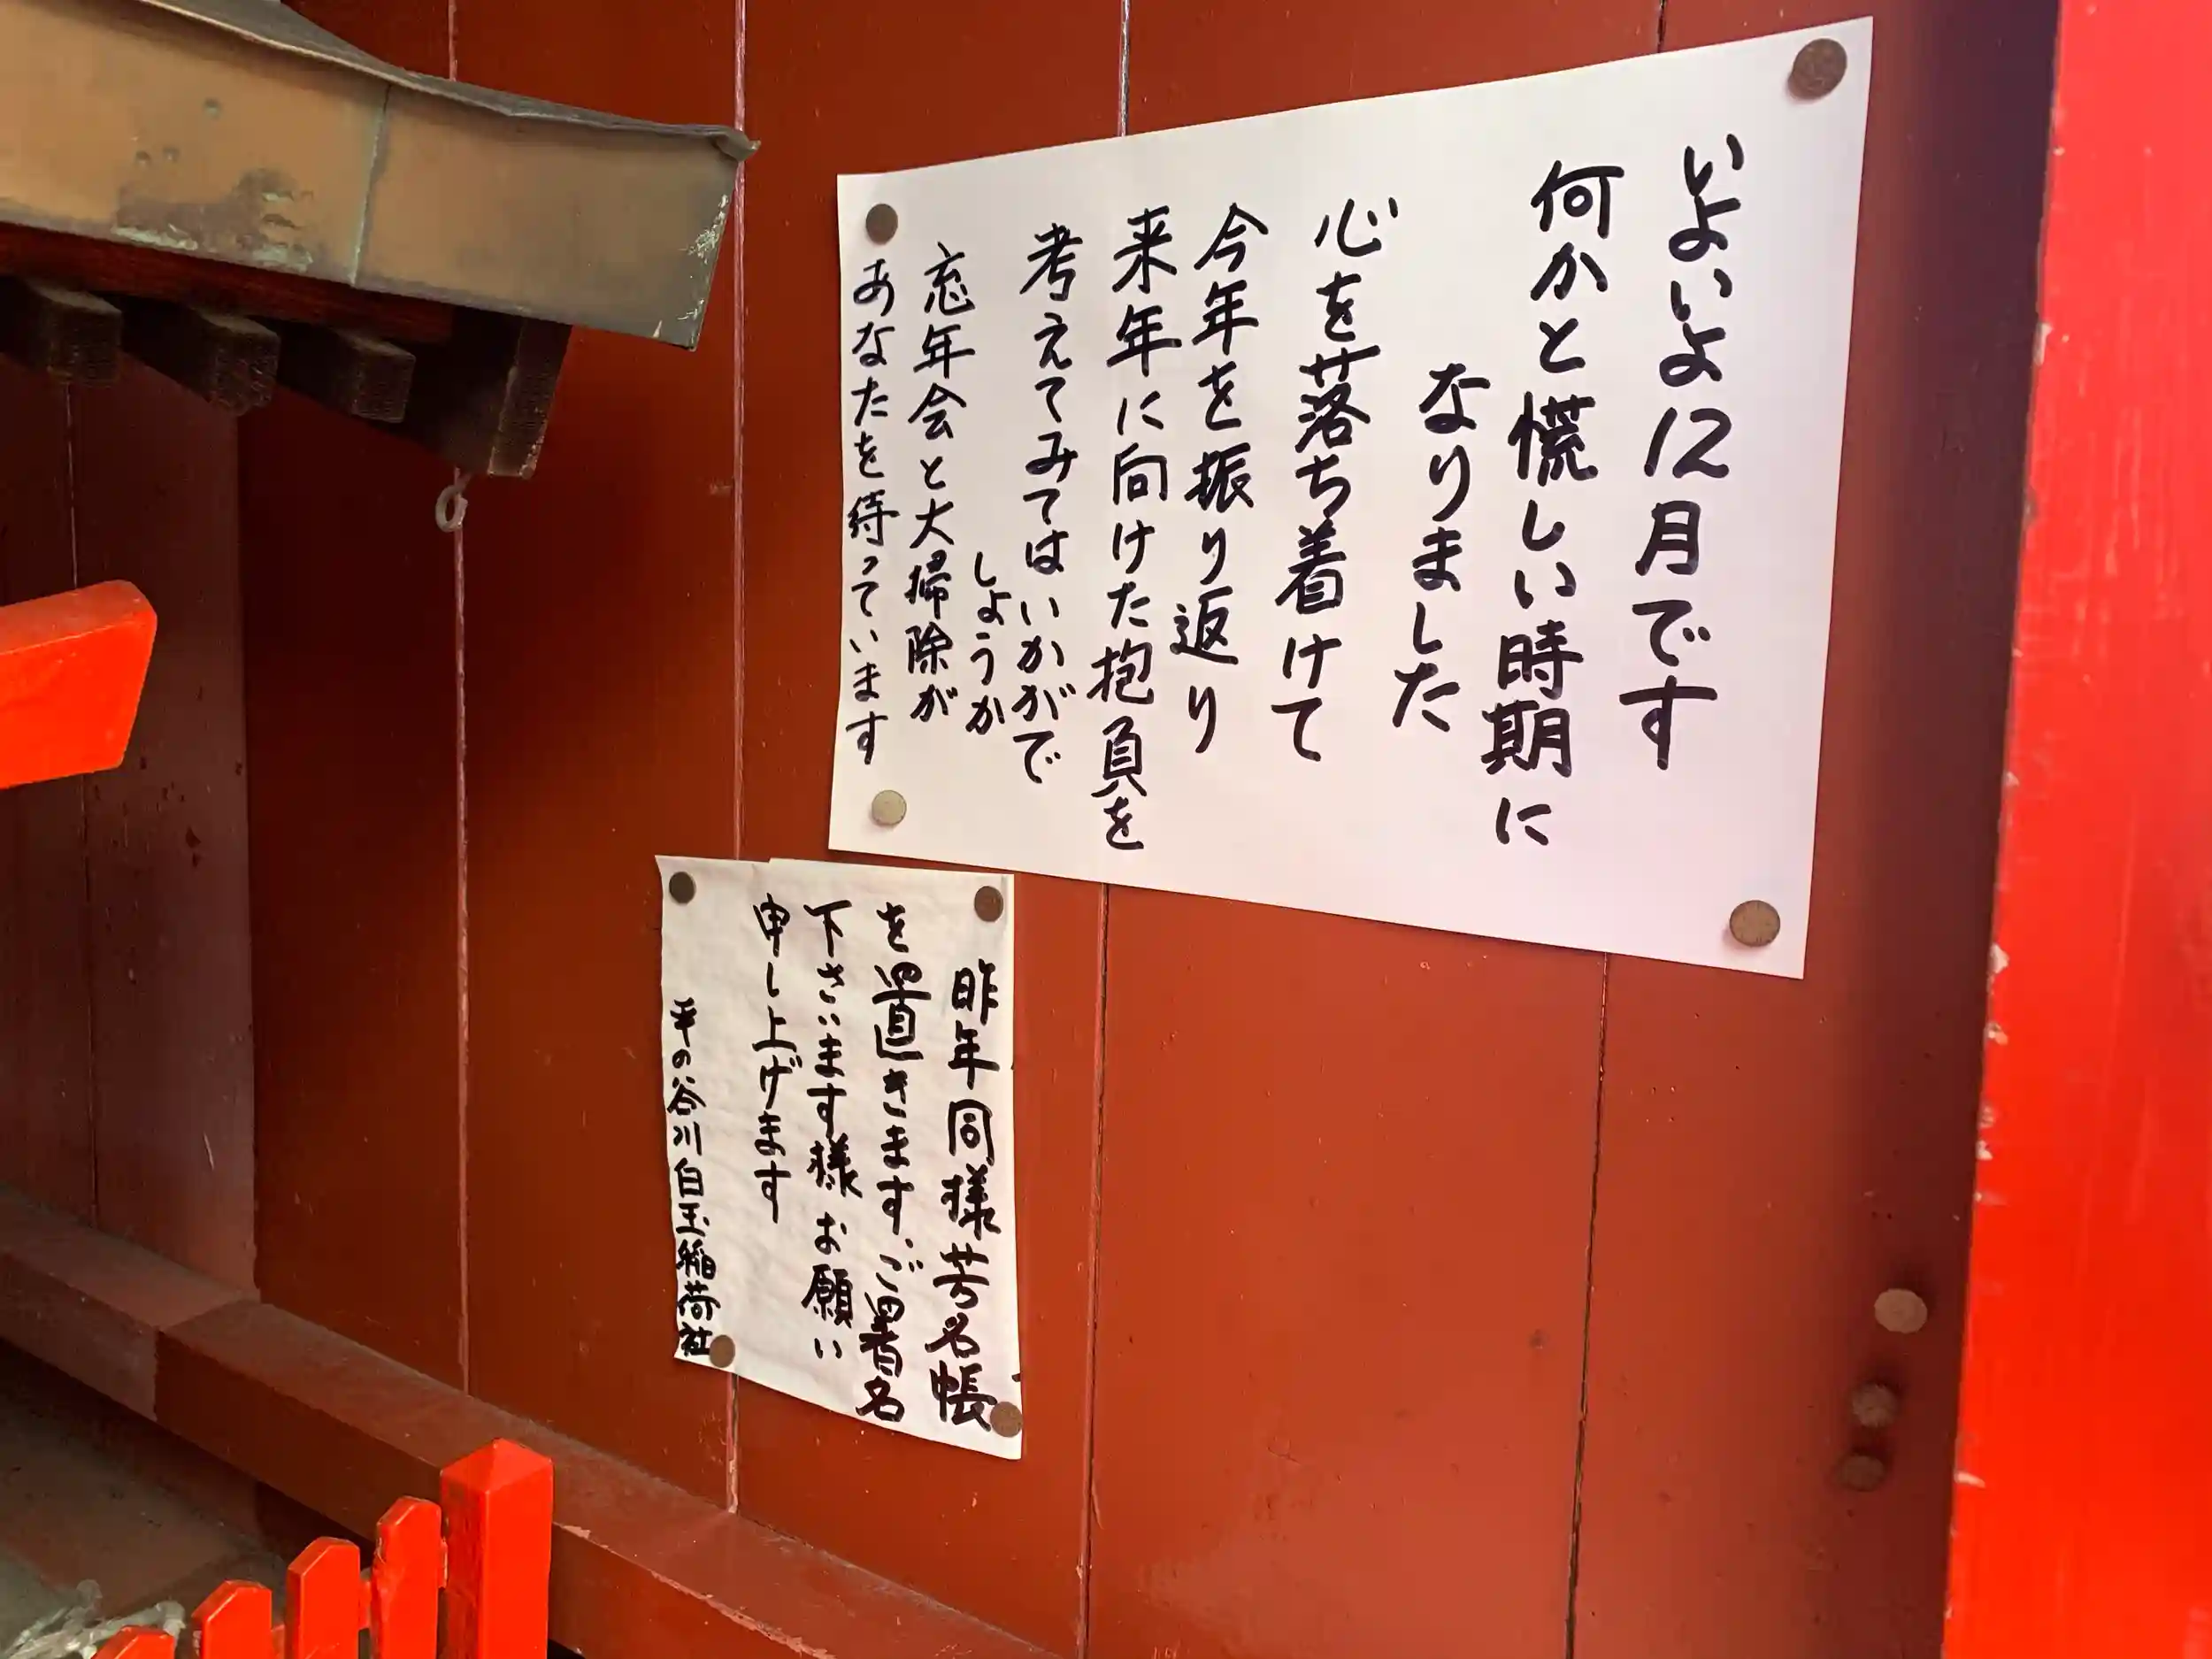 いよいよ12月です
何かと慌しい時期に
なりました
心を落ち着けて
今年を振り返り
来年に向けた抱負を
考えてみてはいかがで
しょうか
忘年会と大掃除が
あなたを待っています
昨年同様芳名帳
を置きます。ご署名
下さいます様お願い
申し上げます
平の谷川白玉稲荷社